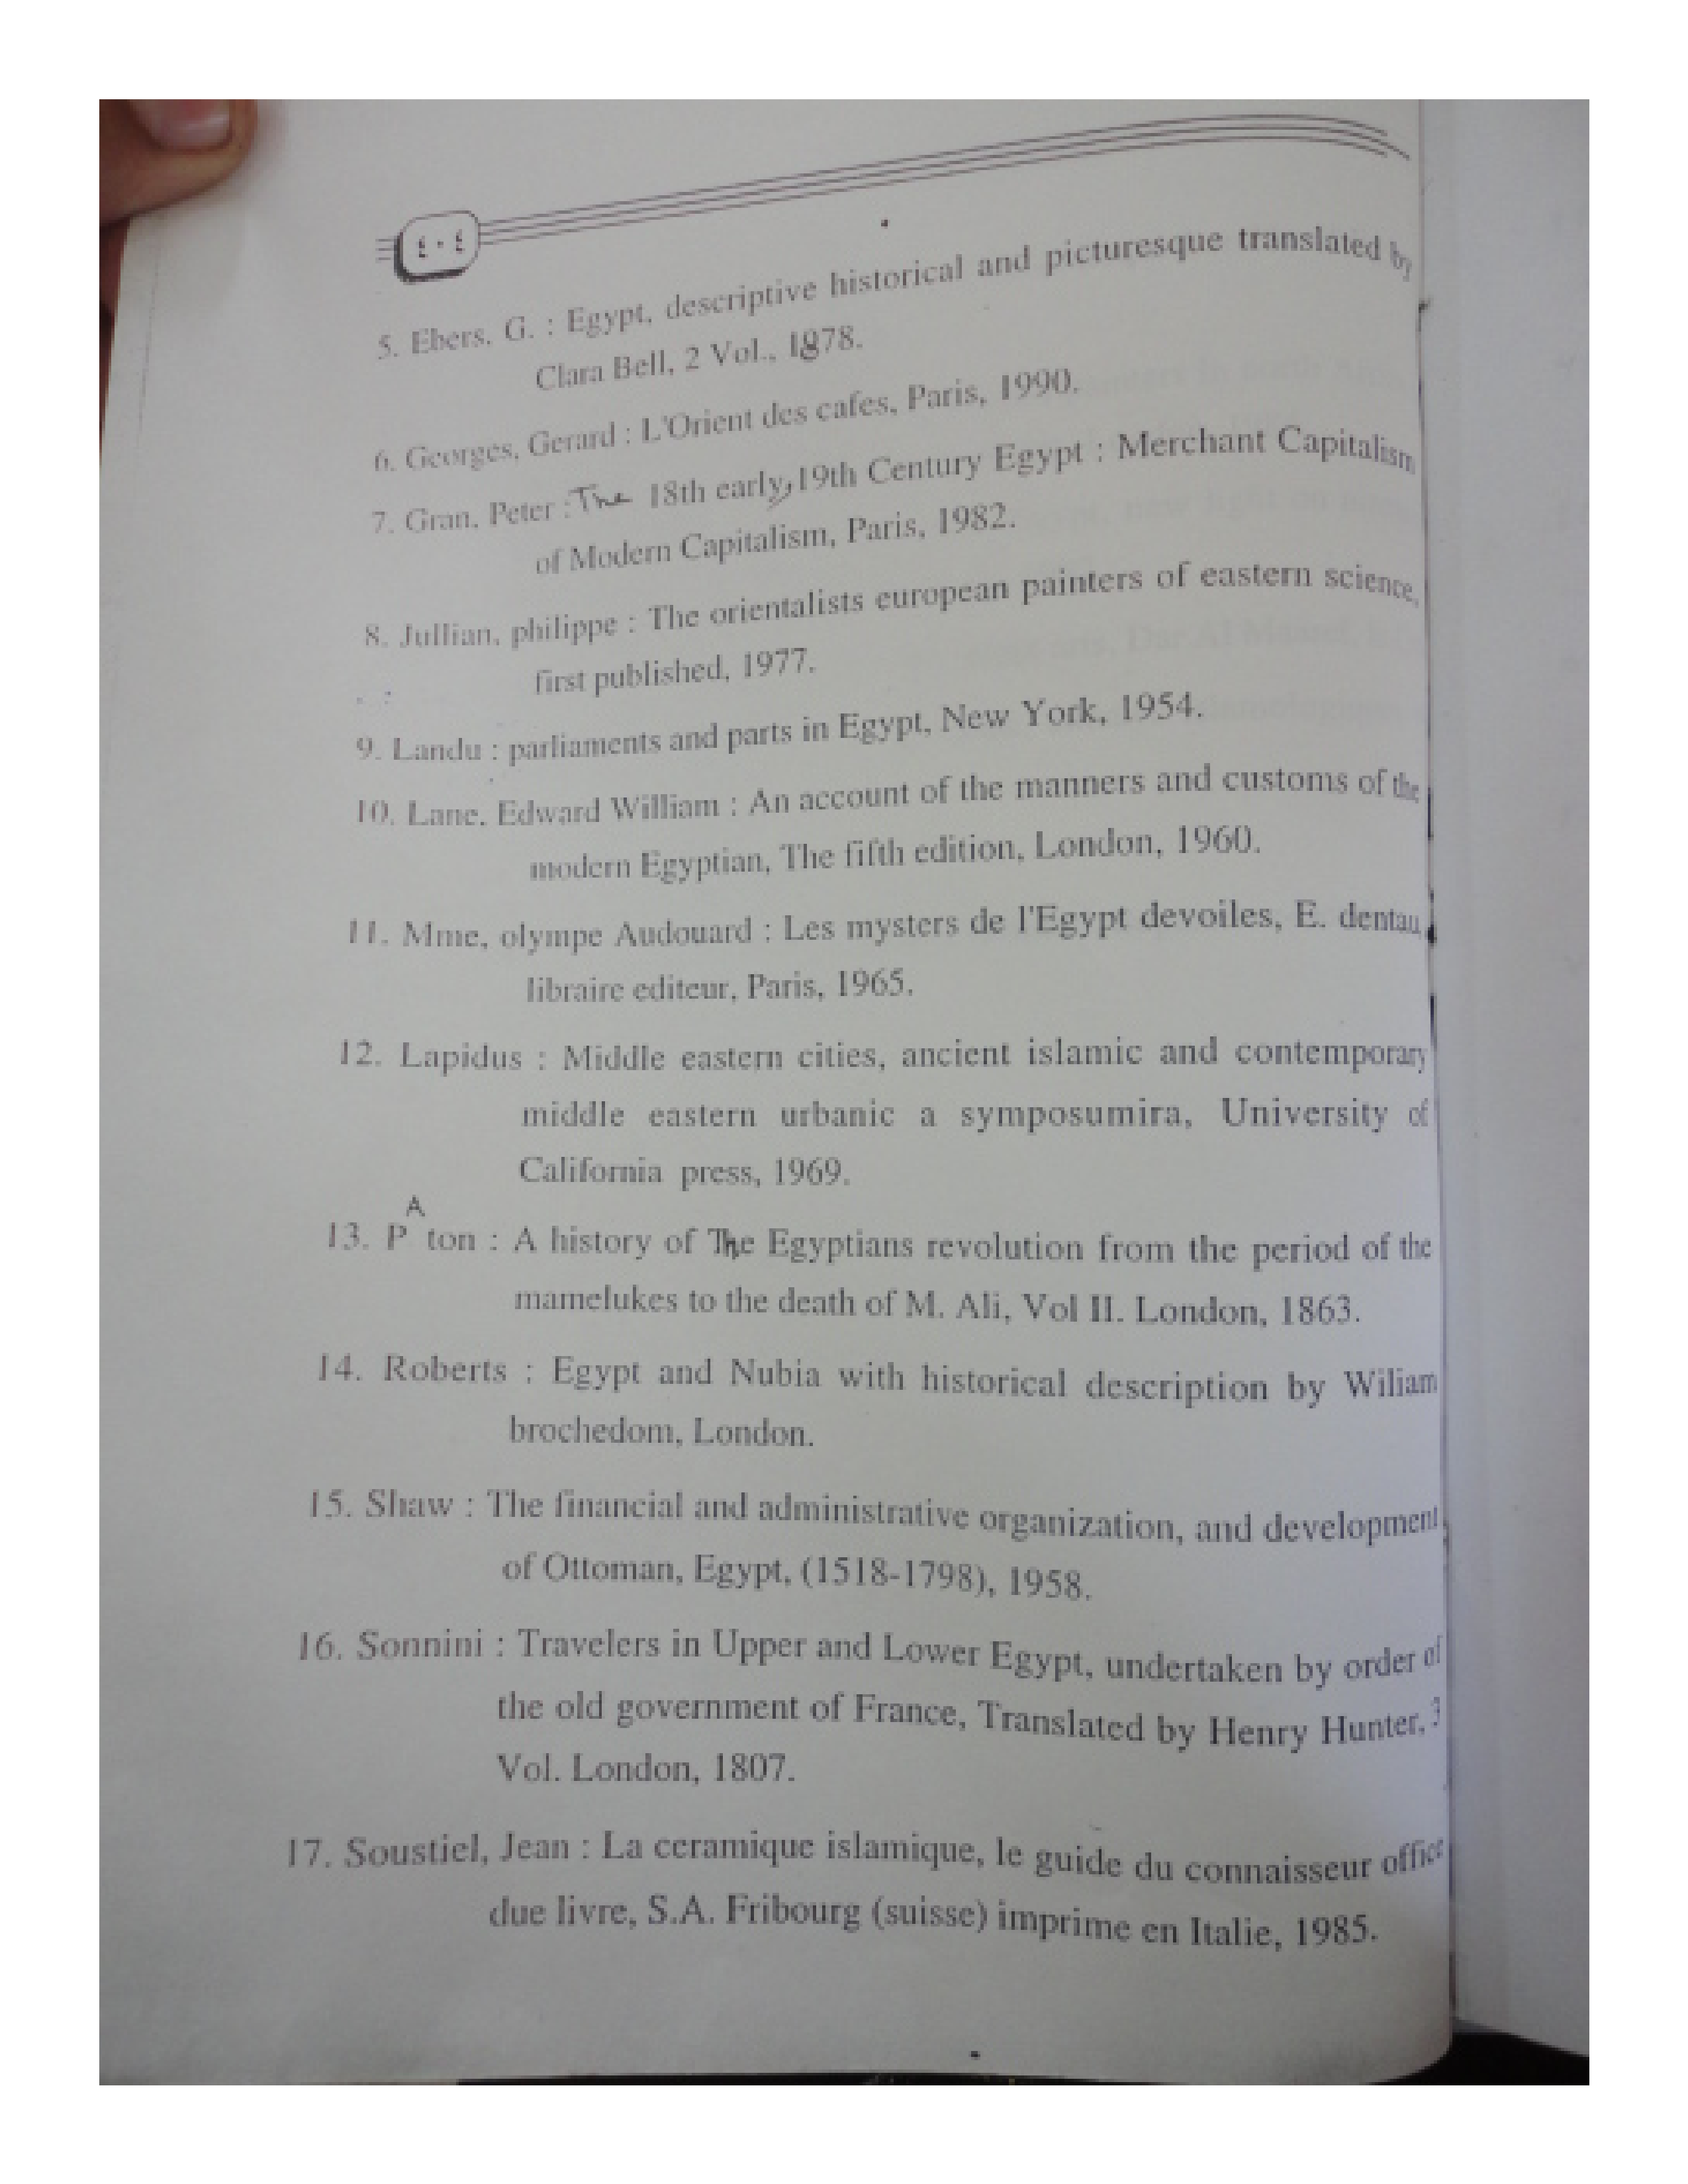 ٤٠٤
5. Ebers, G. : Egypt, descriptive historical and picturesque translated by
Clara Bell, 2 Vol., 1878.
6. Georges, Gerard : L'Orient des cafes, Paris, 1990.
7. Gran, Peter : The 18th early, 19th Century Egypt : Merchant Capitalism
of Modern Capitalism, Paris, 1982.
8. Jullian, philippe : The orientalists european painters of eastern science,
first published, 1977.
9. Landu : parliaments and parts in Egypt, New York, 1954.
10. Lane, Edward William : An account of the manners and customs of the
modern Egyptian, The fifth edition, London, 1960.
11. Mme, olympe Audouard : Les mysters de l'Egypt devoiles, E. dentau,
libraire editeur, Paris, 1965.
12. Lapidus : Middle eastern cities, ancient islamic and contemporary
middle eastern urbanic a symposumira, University of
California press, 1969.
13. PAton : A history of The Egyptians revolution from the period of the
mamelukes to the death of M. Ali, Vol II. London, 1863.
14. Roberts : Egypt and Nubia with historical description by Wiliam
brochedom, London.
15. Shaw : The financial and administrative organization, and development
of Ottoman, Egypt, (1518-1798), 1958.
16. Sonnini : Travelers in Upper and Lower Egypt, undertaken by order of
the old government of France, Translated by Henry Hunter, 3
Vol. London, 1807.
17. Soustiel, Jean : La ceramique islamique, le guide du connaisseur office
due livre, S.A. Fribourg (suisse) imprime en Italie, 1985.